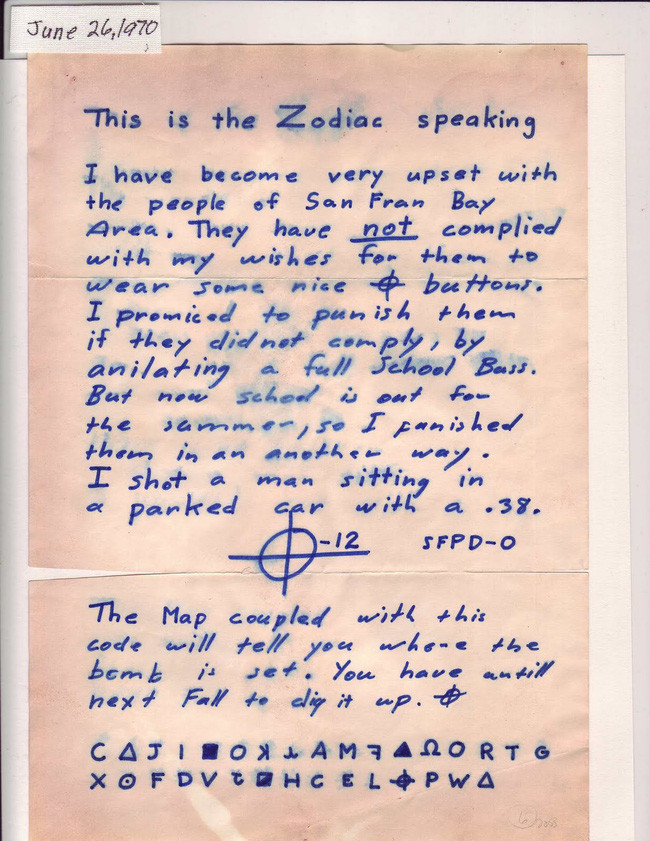 June 26, 1970
This is the Zodiac speaking
I have become very upset with
the people of San Fran Bay
Area. They have not complied
with my wishes for them to
wear some nice ⌖ buttons.
I promiced to punish them
if they did not comply, by
anilating a full School Buss.
But now school is out for
the summer, so I punished
them in an another way.
I shot a man sitting in
a parked car with a .38.
⌖-12 SFPD-0
The Map coupled with this
code will tell you where the
bomb is set. You have untill
next Fall to dig it up. ⌖
C Δ J I ■ O ʞ ⅄ A M ꟻ ▲ Ω O R T G
X ⊙ F D V Ƹ ◪ H C E L ⌖ P W Δ